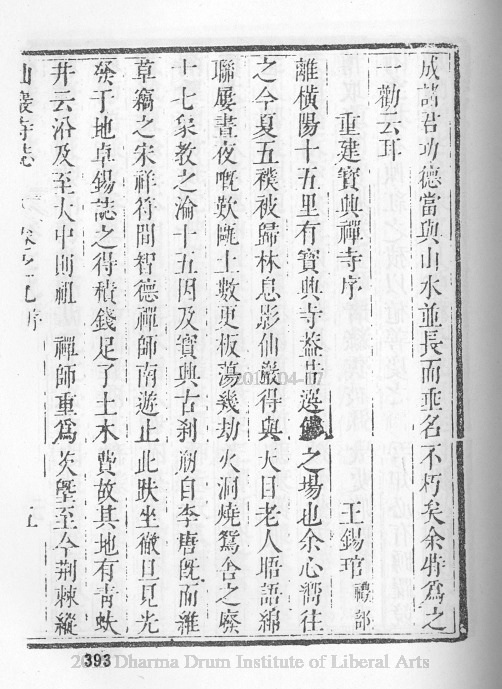 成諸君功德當與山水並長而垂名不朽矣余特為之
一勸云耳
重建寶典禪寺序
王錫琯禮部
離橫陽十五里有寶典寺葢昔選佛之場也余心嚮往
之今夏五襆被歸林息影仙巖得與大目老人晤語綿
聯屢晝夜嘅歎甌土數更板蕩幾劫火洞燒鴛舍之廢
十七象教之淪十五因及寶典古刹剏自李唐旣而雜
草竊之宋祥符間智德禪師南遊止此趺坐徹旦見光
發于地卓錫誌之得積錢足了土木費故其地有青蚨
井云沿及至大中則祖 禪師重為茨墍至今荆棘縱
仙巖寺志 卷之 序 五
393
2010-04-07
Dharma Drum Institute of Liberal Arts